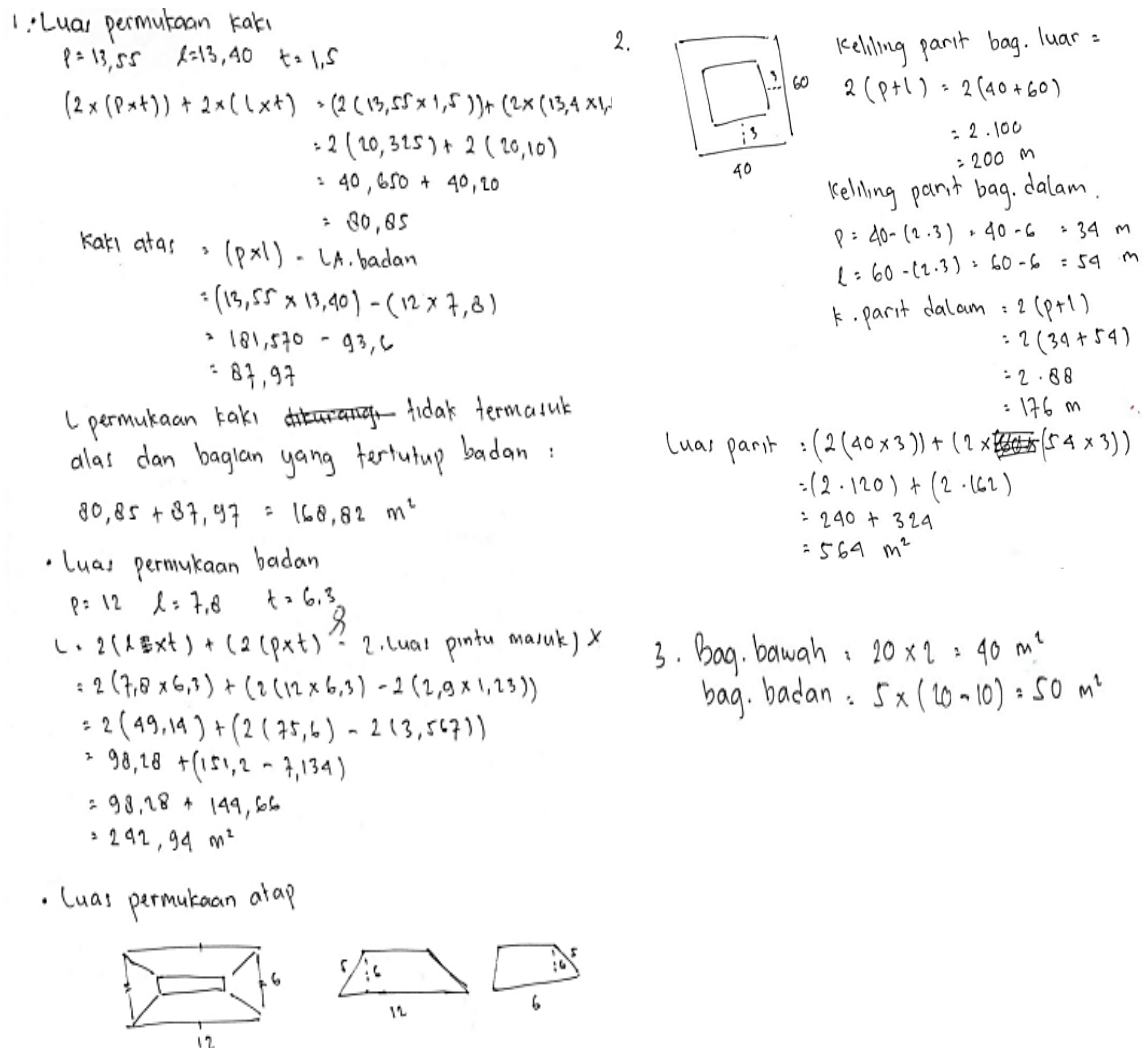 1. • Luas permukaan kaki
p = 13,55 l = 13,40 t = 1,5
(2 × (p×t)) + 2×(l×t) = (2(13,55 × 1,5)) + (2×(13,4 ×1,
= 2(20,325) + 2(20,10)
= 40,650 + 40,20
= 80,85
kaki atas = (p×l) - LA. badan
= (13,55 × 13,40) - (12 × 7,8)
= 181,570 - 93,6
= 87,97
L permukaan kaki dikurangi tidak termasuk
alas dan bagian yang tertutup badan :
80,85 + 87,97 = 168,82 m²
• Luas permukaan badan
p = 12 l = 7,8 t = 6,3
L = 2(l×t) + (2(p×t) - 2. luas pintu masuk) ×
= 2(7,8 ×6,3) + (2(12 × 6,3) - 2(2,9 × 1,23))
= 2(49,14) + (2(75,6) - 2(3,567))
= 98,28 + (151,2 - 7,134)
= 98,28 + 144,66
= 242,94 m²
• Luas permukaan atap
6
12
5 6
12
6 5
6
2.
3 60
3
40
keliling parit bag. luar =
2(p+l) = 2(40+60)
= 2 . 100
= 200 m
keliling parit bag. dalam.
p = 40 - (2.3) = 40 - 6 = 34 m
l = 60 - (2.3) = 60 - 6 = 54 m
k. parit dalam = 2(p+l)
= 2(34 + 54)
= 2 . 88
= 176 m
Luas parit = (2(40×3)) + (2× (54 × 3))
= (2 . 120) + (2 . 162)
= 240 + 324
= 564 m²
3. Bag. bawah = 20 × 2 = 40 m²
bag. badan = 5 × (20 - 10) = 50 m²